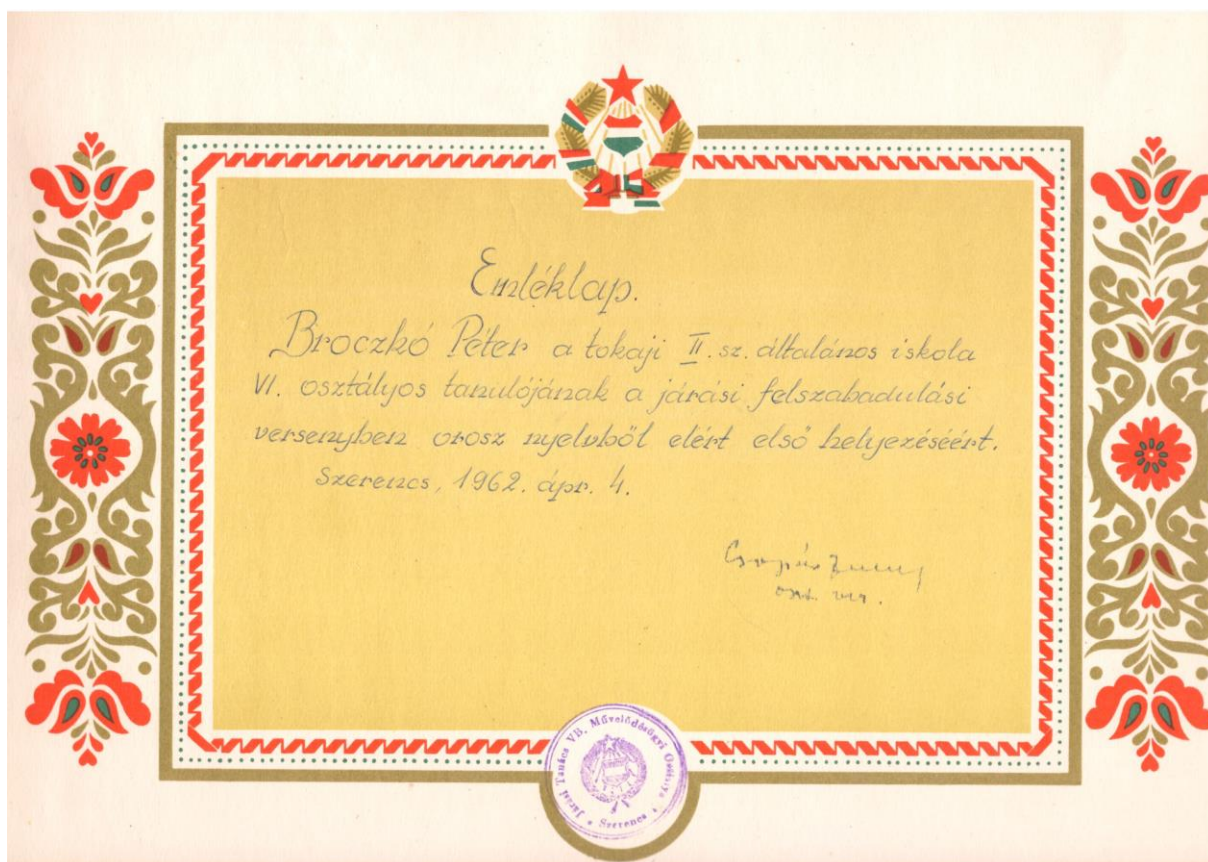 Emléklap.
Broczkó Péter a tokaji II. sz. általános iskola
VI. osztályos tanulójának a járási felszabadulási
versenyben orosz nyelvből elért első helyezéséért.
Szerencs, 1962. ápr. 4.
oszt. vez.
Járási Tanács VB. Művelődésügyi Osztálya * Szerencs *